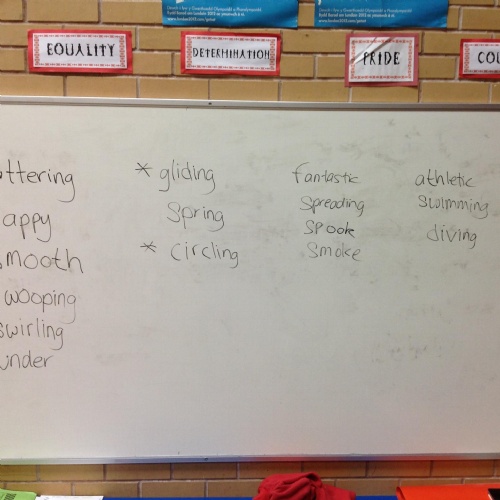 EQUALITY
DETERMINATION
PRIDE
COU
ttering
appy
mooth
wooping
swirling
under
* gliding
Spring
* circling
fantastic
Spreading
Spook
Smoke
athletic
Swimming
diving